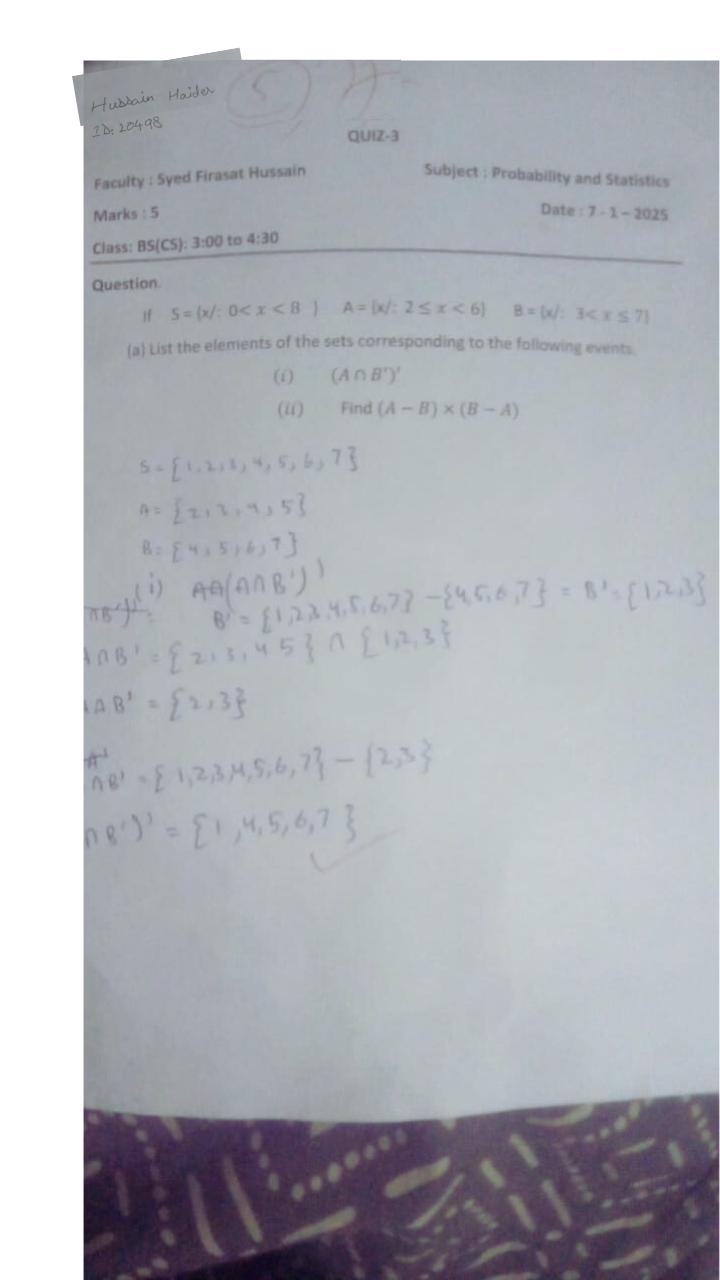 Hussain Haider
ID: 20498
5
QUIZ-3
Faculty : Syed Firasat Hussain Subject : Probability and Statistics
Marks : 5 Date : 7 - 1 – 2025
Class: BS(CS): 3:00 to 4:30
Question.
If S = {x/: 0< x < 8 } A = {x/: 2 ≤ x < 6} B = {x/: 3< x ≤ 7}
(a) List the elements of the sets corresponding to the following events.
(i) (A ∩ B')'
(ii) Find (A − B) × (B − A)
S = {1,2,3,4,5,6,7}
A = {2,3,4,5}
B = {4,5,6,7}
(i) (A∩B')'
B' = {1,2,3,4,5,6,7} − {4,5,6,7} = B' = {1,2,3}
∩B' = {2,3,4 5} ∩ {1,2,3}
∩B' = {2,3}
∩B' = {1,2,3,4,5,6,7} − {2,3}
∩B')' = {1,4,5,6,7}